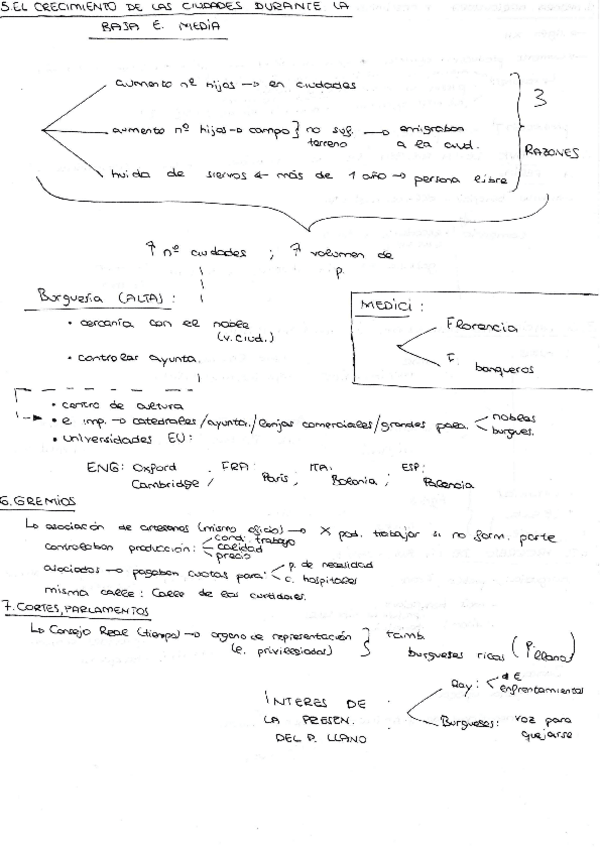 5. EL CRECIMIENTO DE LAS CIUDADES DURANTE LA
BAJA E. MEDIA
aumento nº hijos → en ciudades
aumento nº hijos → campo } no suf. terreno → emigraban a la ciud.
huida de siervos ← más de 1 año → persona libre
3 RAZONES
↑ nº ciudades ; ↑ volumen de p.
Burguesía (ALTA) :
• cercanía con el noble
(v. ciud.)
• controlar ayunta.
MEDICI :
Florencia
F. banqueros
• centro de cultura
• e imp. → catedrales/ayunta./lonjas comerciales/grandes pala. < nobles
burgues.
• Universidades EU:
ENG: Oxford Cambridge / FRA: París ; ITA: Bolonia ; ESP: Palencia
6. GREMIOS
↳ asociación de artesanos (mismo oficio) → X pod. trabajar si no form. parte
controlaban producción: < cond. trabajo
calidad
precio
asociados → pagaban cuotas para: < p. de necesidad
c. hospitales
misma calle : Calle de los curtidores.
7. CORTES, PARLAMENTOS
↳ Consejo Real (tiempo) → organo de representación } tamb
(e. privilegiados) burgueses ricos (P. llano)
INTERES DE
LA PRESEN.
DEL P. LLANO
Rey : < d €
enfrentamientos
Burgueses: voz para
quejarse